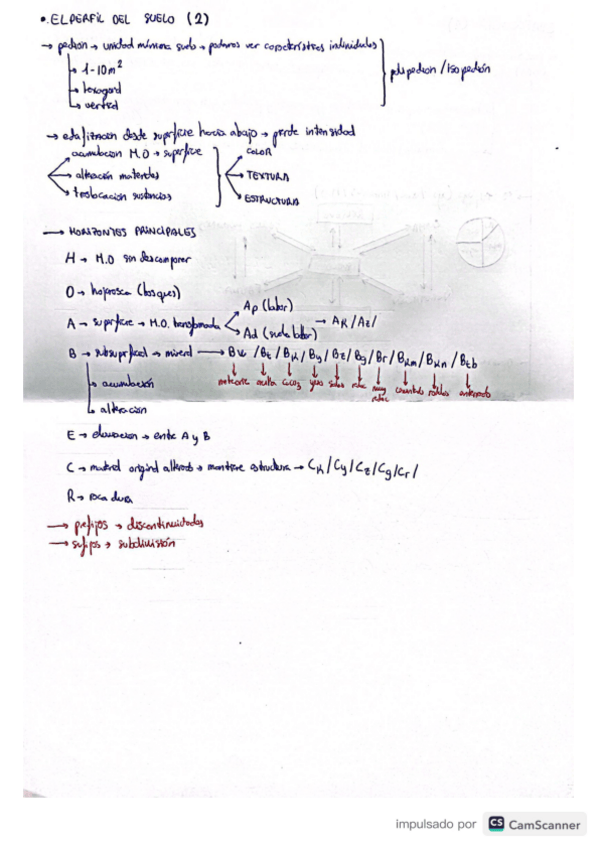 •. EL PERFIL DEL SUELO (2)
→ pedion → unidad mínima suelo → podemos ver características individuales
↳ 1-10m²
↳ hexagonal
↳ vertical
polipedion / Isopedión
→ edafización desde superficie hacia abajo → pierde intensidad
acumulación M.O → superficie
→ alteración materiales
→ traslocación sustancias
→ COLOR
→ TEXTURA
→ ESTRUCTURA
→ HORIZONTES PRINCIPALES
H → M.O sin descomponer
O → hojarasca (bosques)
A → superficie → M.O. transformada
Ap (labor)
Ad (suela labor)
→ Ak / Az /
B → subsuperficial → mineral → Bw / Bt / Bk / By / Bz / Bg / Br / Bkm / Bkn / Btb
meteoriz arcilla CaCO3 yeso sales redox muy redox cementado nódulos enterrado
→ acumulación
↳ alteración
E → eluviación → entre A y B
C → material original alterado → mantiene estructura → Ck / Cy / Cz / Cg / Cr /
R → roca dura
→ prefijos → discontinuidades
→ sufijos → subdivisión
impulsado por CS CamScanner